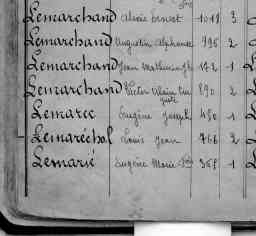 Lemarchand Alexis Ernest 1011 3
Lemarchand Augustin Alphonse 796 2
Lemarchand Jean Mathurin 142 1
Lemarchand Victor Alain 890 2
Lemarec Eugène Joseph 450 1
Lemaréchal Louis Jean 766 2
Lemarié Eugène Marie 365 1